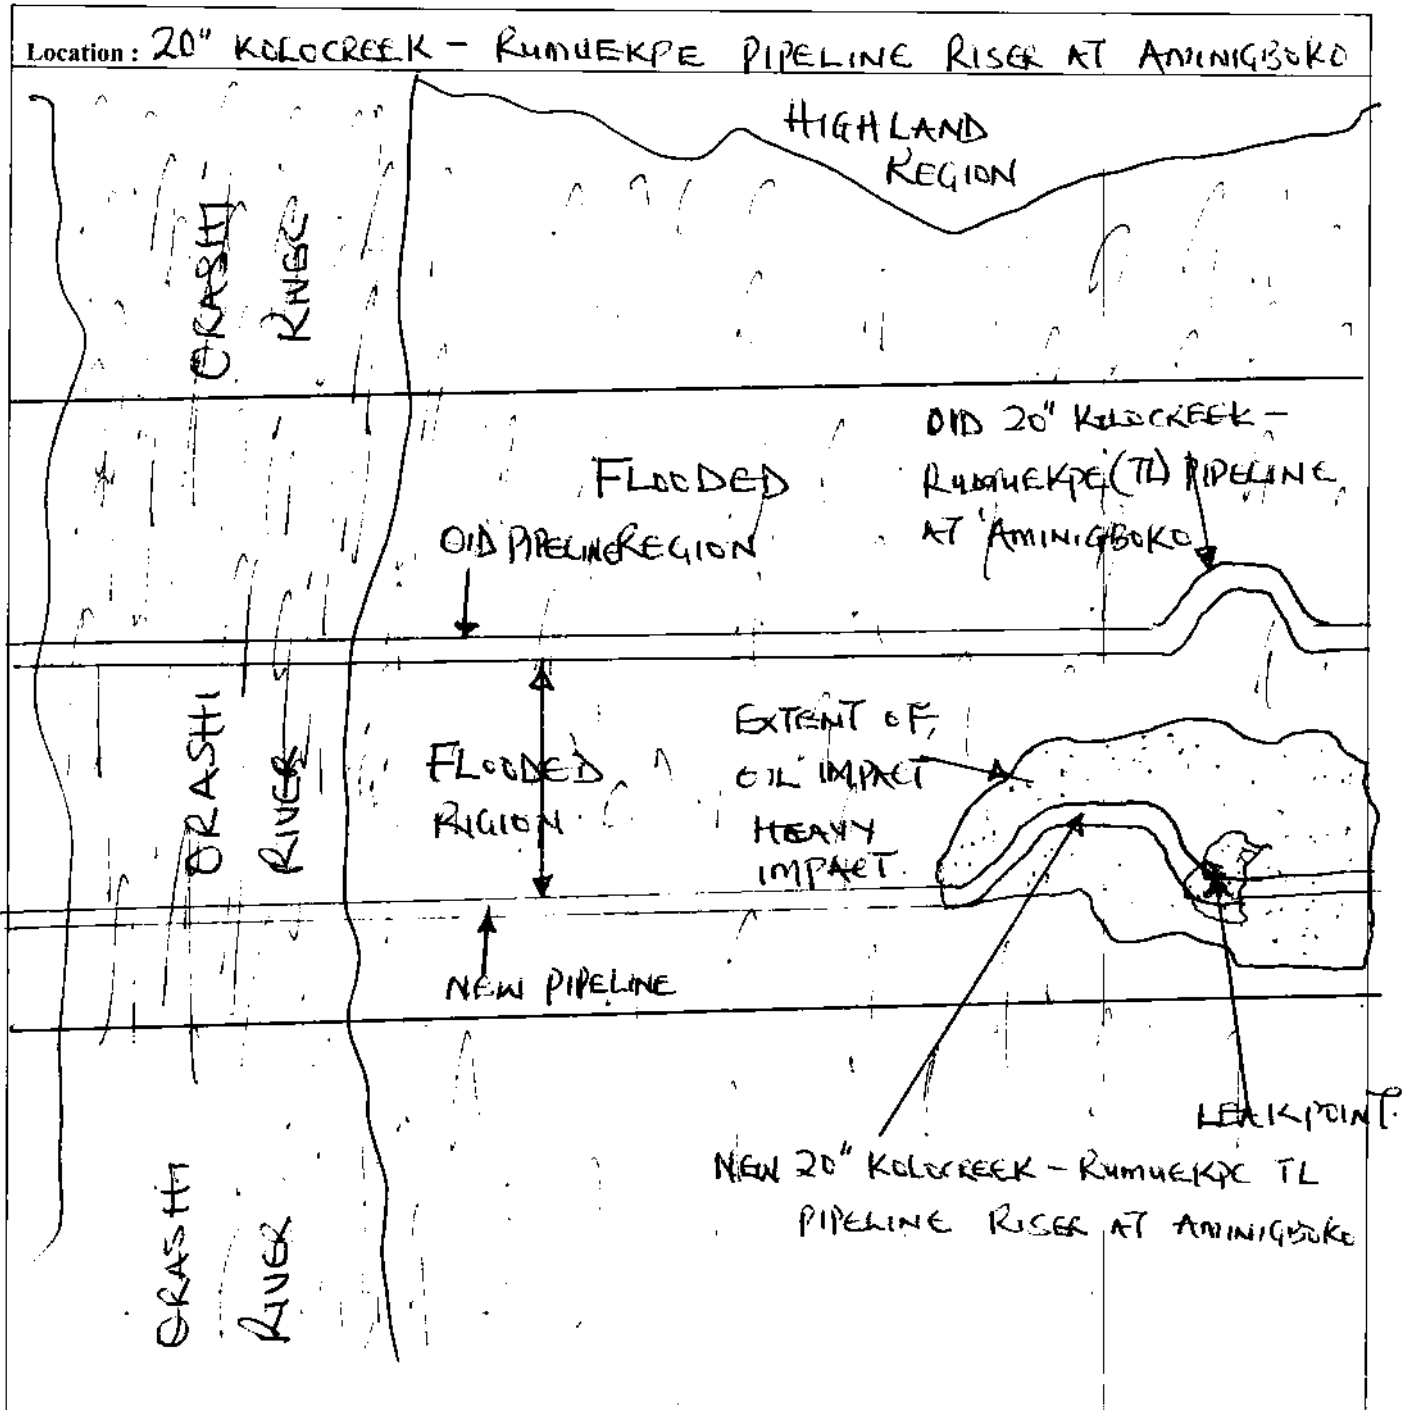 Location : 20" KOLOCREEK - RUMUEKPE PIPELINE RISER AT AMINIGBOKO
HIGHLAND
REGION
ORASHI
RIVER
OLD 20" KOLOCREEK -
RUMUEKPE (TL) PIPELINE
AT AMINIGBOKO
FLOODED
REGION
OLD PIPELINE
ORASHI
RIVER
FLOODED
RIGION
EXTENT OF
OIL IMPACT
HEAVY
IMPACT.
NEW PIPELINE
LEAK POINT.
NEW 20" KOLOCREEK - RUMUEKPE TL
PIPELINE RISER AT AMINIGBOKO
ORASHI
RIVER